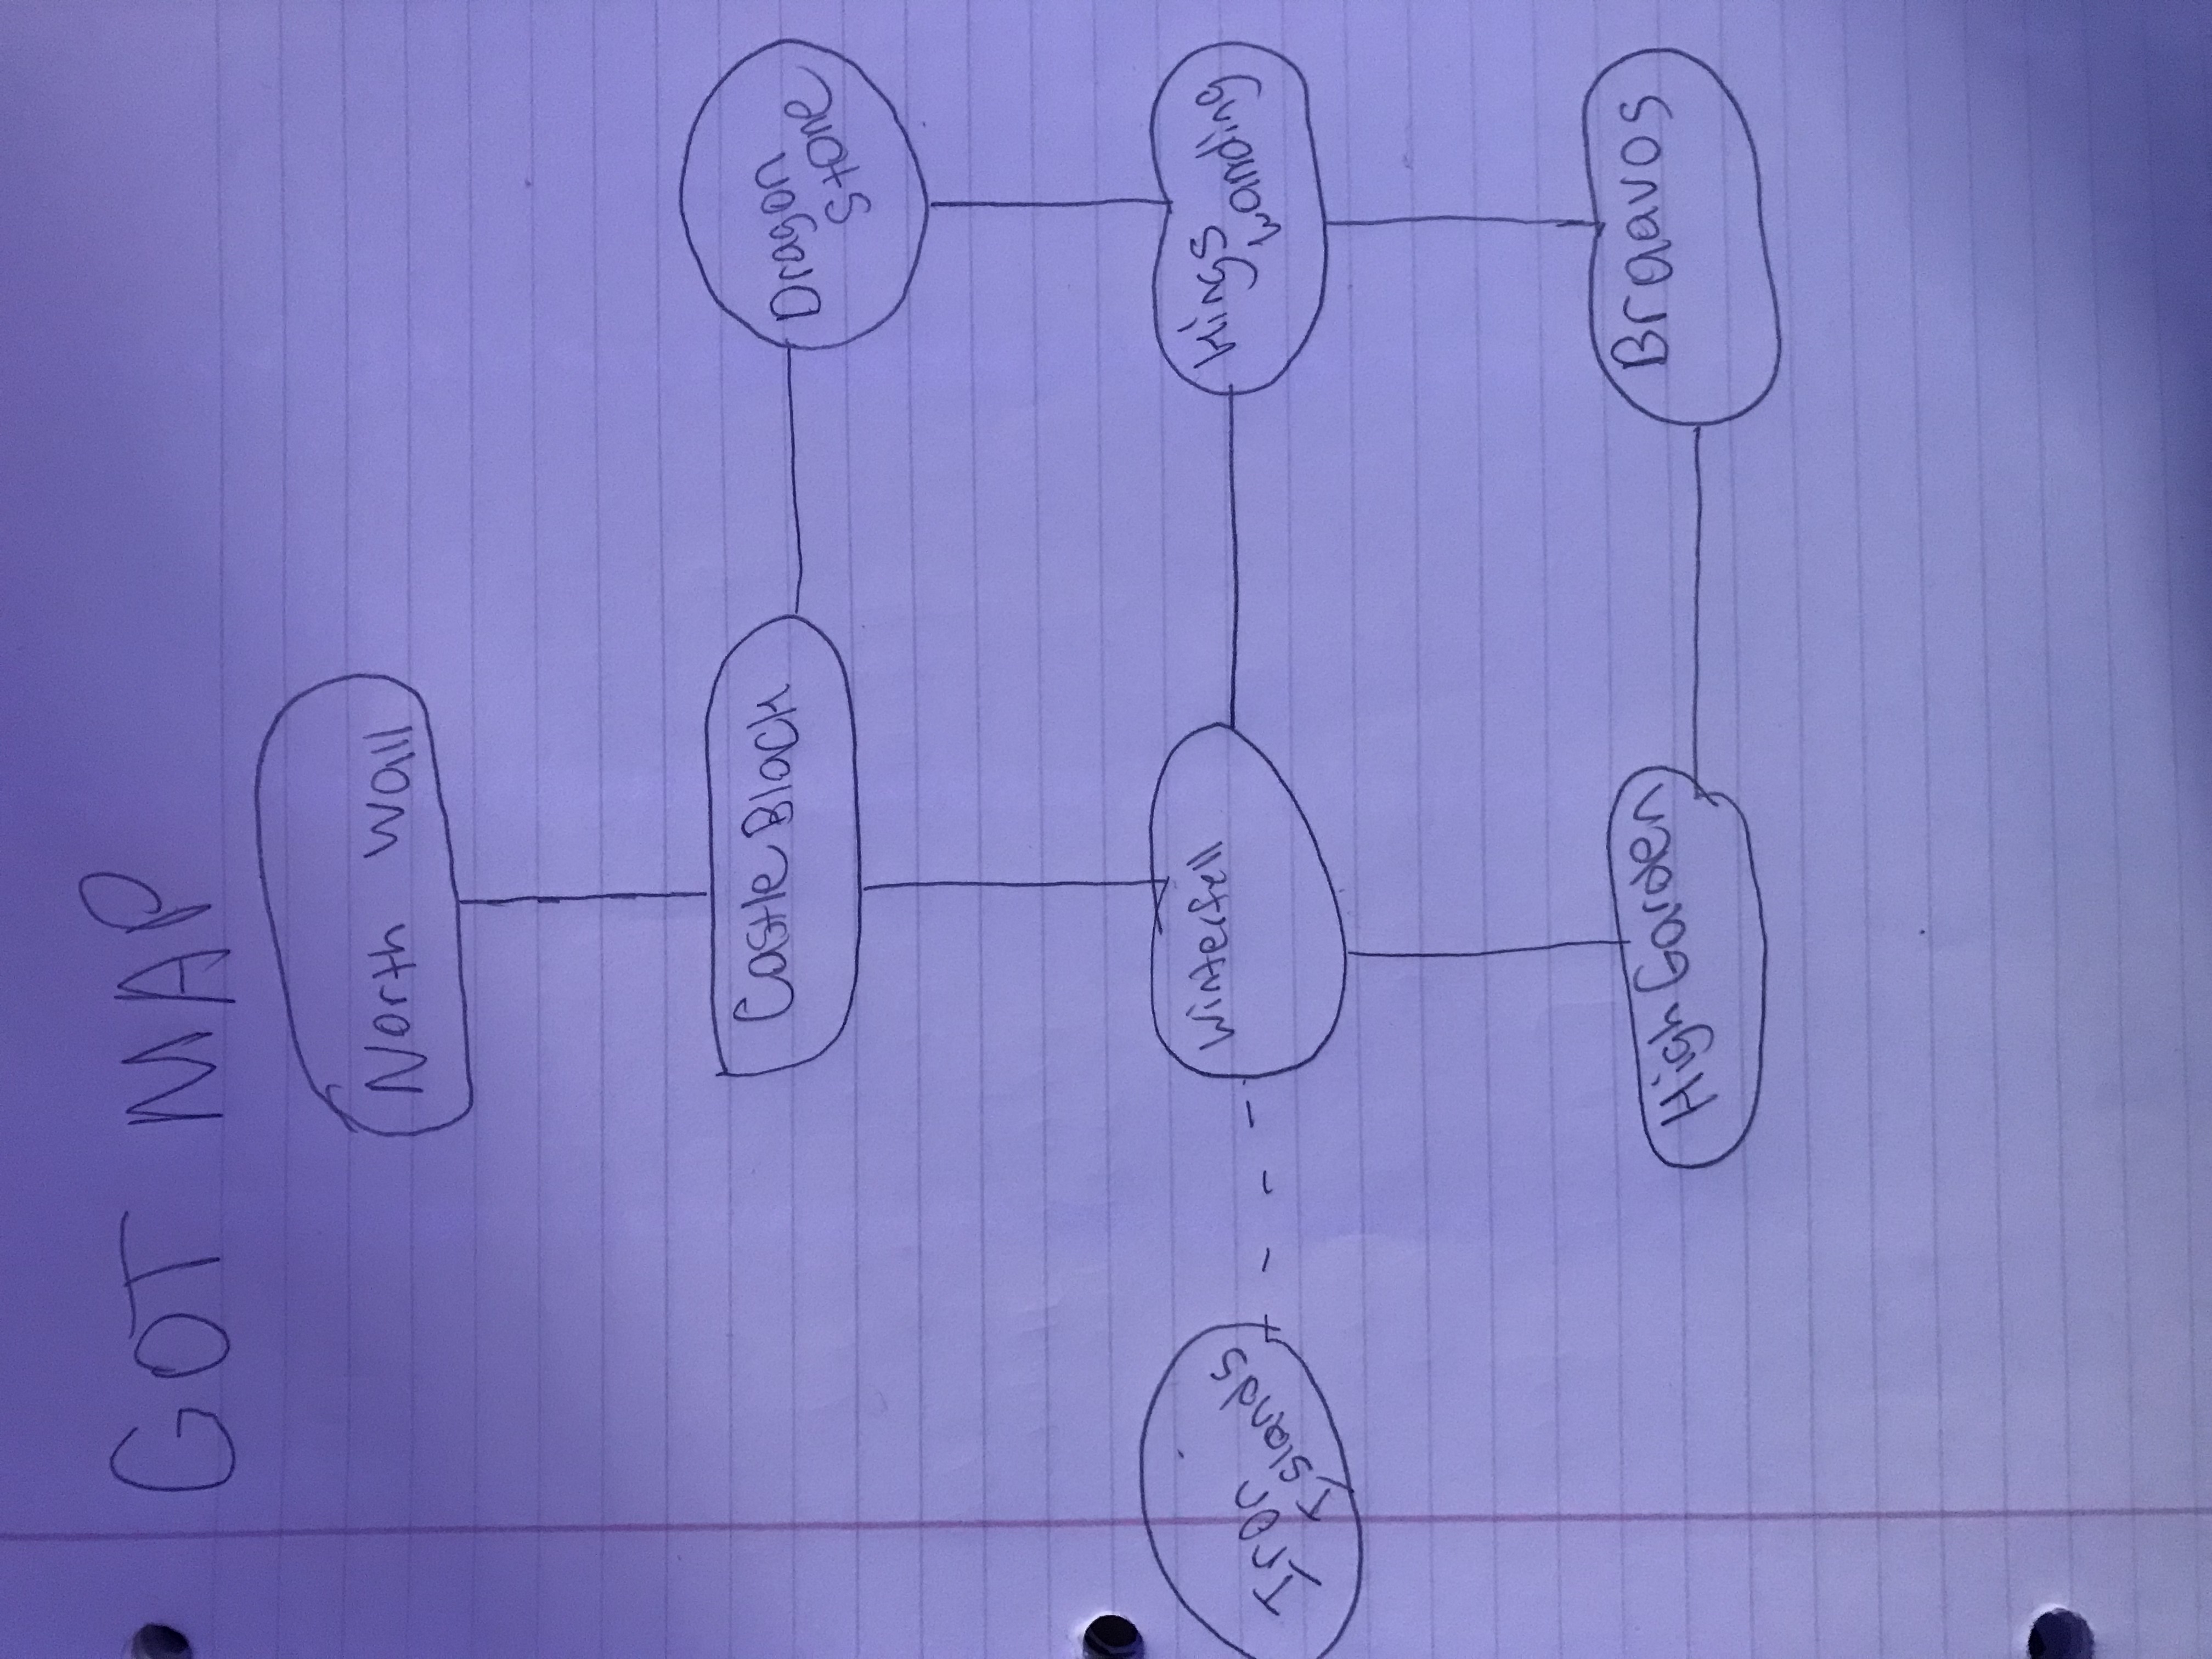 GOT MAP
North Wall
Castle Black
Dragon
Stone
Iron
Islands
Winterfell
Kings
Landing
High Garden
Braavos